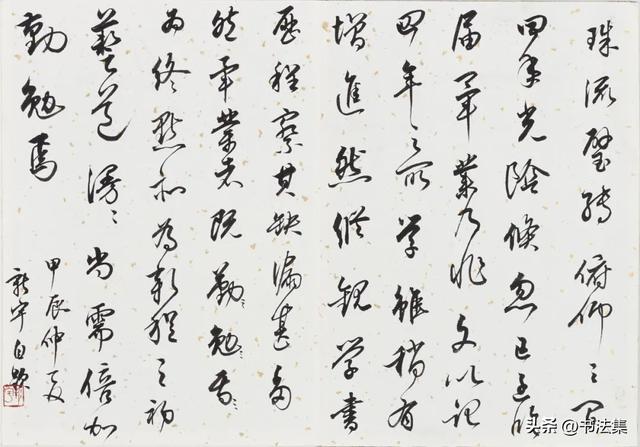 珠流璧转俯仰之间
四年光阴倏忽已过欣
届毕业乃作文以记
四年之所学虽稍有
增进然纵观学书
历程察其缺漏甚多
然毕业者既勤勤勉勉
为终点亦为新程之初
艺道漫漫尚需倍加
勤勉焉
甲辰仲夏
新宇自题
头条@书法集